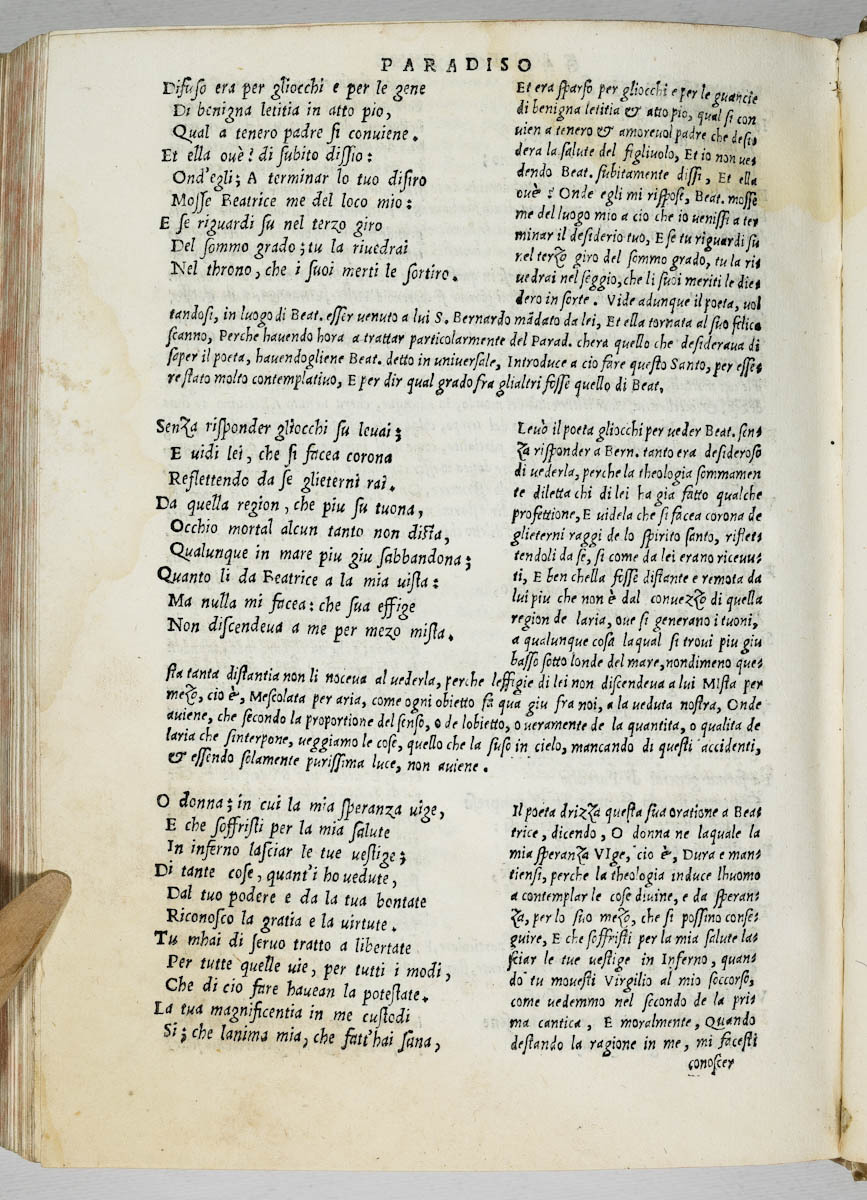 PARADISO
Difuso era per gliocchi e per le gene
Di benigna letitia in atto pio,
Qual a tenero padre si conuiene.
Et ella ouè? di subito dissio:
Ond'egli; A terminar lo tuo disiro
Mosse Beatrice me del loco mio:
E se riguardi su nel terzo giro
Del sommo grado; tu la riuedrai
Nel throno, che i suoi merti le sortiro.
Et era sparso per gliocchi e per le guancie
di benigna letitia & atto pio, qual si con
uien a tenero & amoreuol padre che desi⸗
dera la salute del figliuolo, Et io non ue⸗
dendo Beat. subitamente dissi, Et ella
ouè? Onde egli mi rispose, Beat. mosse
me del luogo mio a cio che io uenissi a ter
minar il desiderio tuo, E se tu riguardi su
nel terzo giro del sommo grado, tu la ri⸗
uedrai nel seggio, che li suoi meriti le die⸗
dero in sorte. Vide adunque il poeta, uol
tandosi, in luogo di Beat. esser uenuto a lui S. Bernardo mãdato da lei, Et ella tornata al suo felice
scanno, Perche hauendo hora a trattar particolarmente del Parad. chera quello che desideraua di
saper il poeta, hauendogliene Beat. detto in uniuersale, Introduce a cio fare questo Santo, per esse⸗
re stato molto contemplatiuo, E per dir qual grado fra glialtri fosse quello di Beat.
Senza risponder gliocchi su leuai;
E uidi lei, che si facea corona
Reflettendo da se glieterni rai.
Da quella region, che piu su tuona,
Occhio mortal alcun tanto non dista,
Qualunque in mare piu giu sabbandona;
Quanto li da Beatrice a la mia uista:
Ma nulla mi facea: che sua effige
Non discendeua a me per mezo mista.
Leuò il poeta gliocchi per ueder Beat. sen⸗
za risponder a Bern. tanto era desideroso
di uederla, perche la theologia sommamen
te diletta chi di lei ha gia fatto qualche
profettione, E uidela che si facea corona de
glieterni raggi de lo spirito santo, riflet⸗
tendoli da se, si come da lei erano riceuu⸗
ti, E ben chella fosse distante e remota da
lui piu che non è dal conuezzo di quella
region de laria, oue si generano i tuoni,
a qualunque cosa laqual si troui piu giu
basso sotto londe del mare, nondimeno que⸗
sta tanta distantia non li noceua al uederla, perche leffigie di lei non discendeua a lui Mista per
mezo, cio è, Mescolata per aria, come ogni obietto fa qua giu fra noi, a la ueduta nostra, Onde
auiene, che secondo la proportione del senso, o de lobietto, o ueramente de la quantita, o qualita de
laria che sinterpone, ueggiamo le cose, quello che la suso in cielo, mancando di questi accidenti,
& essendo solamente purissima luce, non auiene.
O donna; in cui la mia speranza uige,
E che soffristi per la mia salute
In inferno lasciar le tue uestige;
Di tante cose, quant'i ho uedute,
Dal tuo podere e da la tua bontate
Riconosco la gratia e la uirtute.
Tu mhai di seruo tratto a libertate
Per tutte quelle uie, per tutti i modi,
Che di cio fare hauean la potestate.
La tua magnificentia in me custodi
Si; che lanima mia, che fatt'hai sana,
Il poeta drizza questa sua oratione a Bea⸗
trice, dicendo, O donna ne laquale la
mia speranza VIge, cio è, Dura e man⸗
tiensi, perche la theologia induce lhuomo
a contemplar le cose diuine, e da speran⸗
za, per lo suo mezo, che si possino conse⸗
guire, E che soffristi per la mia salute las⸗
sciar le tue uestige in Inferno, quan⸗
do tu mouesti Virgilio al mio soccorso,
come uedemmo nel secondo de la pri⸗
ma cantica, E moralmente, Quando
destando la ragione in me, mi facesti
conoscer